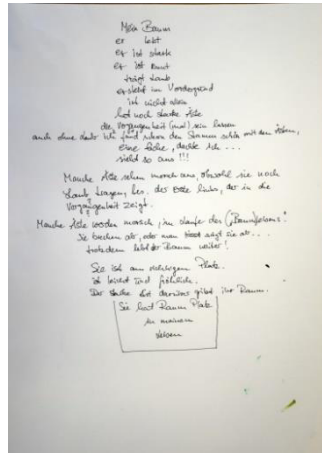 Mein Baum
er lebt
er ist stark
er ist bunt
trägt Laub
er steht im Vordergrund
ist nicht allein
hat noch starke Äste
die Vergangenheit (mal) sein lassen
auch ohne Laub ich fand schon den Stamm schön mit den Ästen,
eine Eiche, dachte ich ...
sieht so aus !!!
Manche Äste sehen morsch aus, obwohl sie noch
Laub tragen, bes. der erste links, der in die
Vergangenheit zeigt.
Manche Äste werden morsch, im Laufe des (Baum)lebens.
Sie brechen ab, oder man sägt sie ab...
trotzdem lebt der Baum weiter!
See ist am richtigen Platz.
ist leicht und fröhlich.
Der starke Ast darüber gibt ihr Raum.
Sie hat Raum Platz
in meinem
Leben